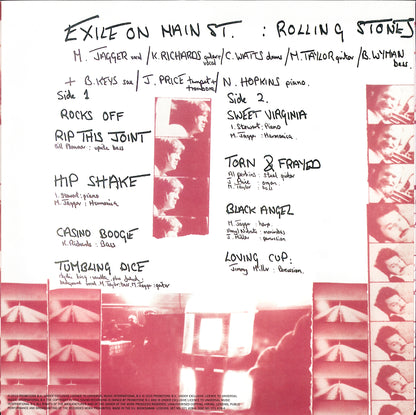 EXILE ON MAIN ST. : ROLLING STONES
M. JAGGER vocal / K. RICHARDS guitar vocal / C. WATTS drums / M. TAYLOR guitar / B. WYMAN bass.
+ B. KEYS sax / J. PRICE trumpet + trombone / N. HOPKINS piano.
Side 1
ROCKS OFF
RIP THIS JOINT
Bill Plummer : uprite bass
HIP SHAKE
I. Stewart : piano
M. Jagger : Harmonica
CASINO BOOGIE
K. Richards : Bass
TUMBLING DICE
M. Taylor
M. Jagger : guitar
Side 2.
SWEET VIRGINIA
I. Stewart : Piano
M. Jagger : Harmonica.
TORN & FRAYED
Al perkins : steel guitar
J. Price : organ
M. Taylor : bass
BLACK ANGEL
M. Jagger : harp
marimbas
J. Miller : percussion
LOVING CUP :
Jimmy Miller : Percussion.